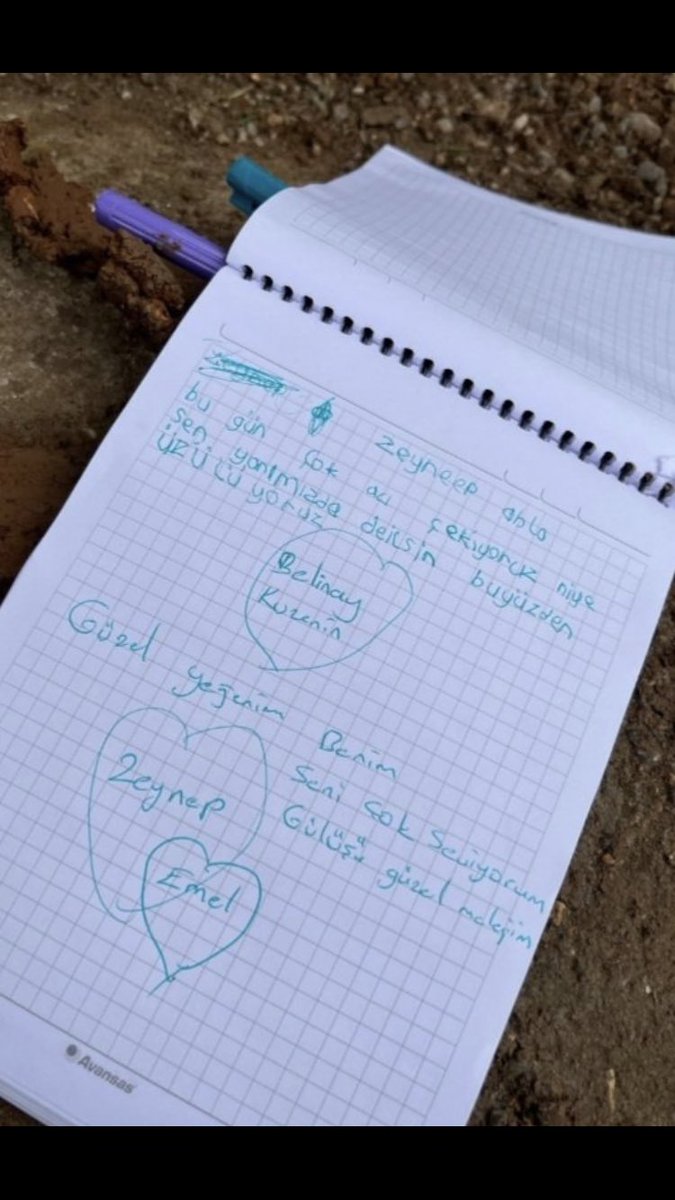 zeyneep abla
bu gün çok acı çekiyoruk niye
sen yanımızda deilsin buyüzden
üzülüyoruz
Belinay
Kuzenin
Güzel yeğenim Benim
Zeynep
Seni çok Seviyorum
Gülüşü güzel meleğim
Emel
Avansas